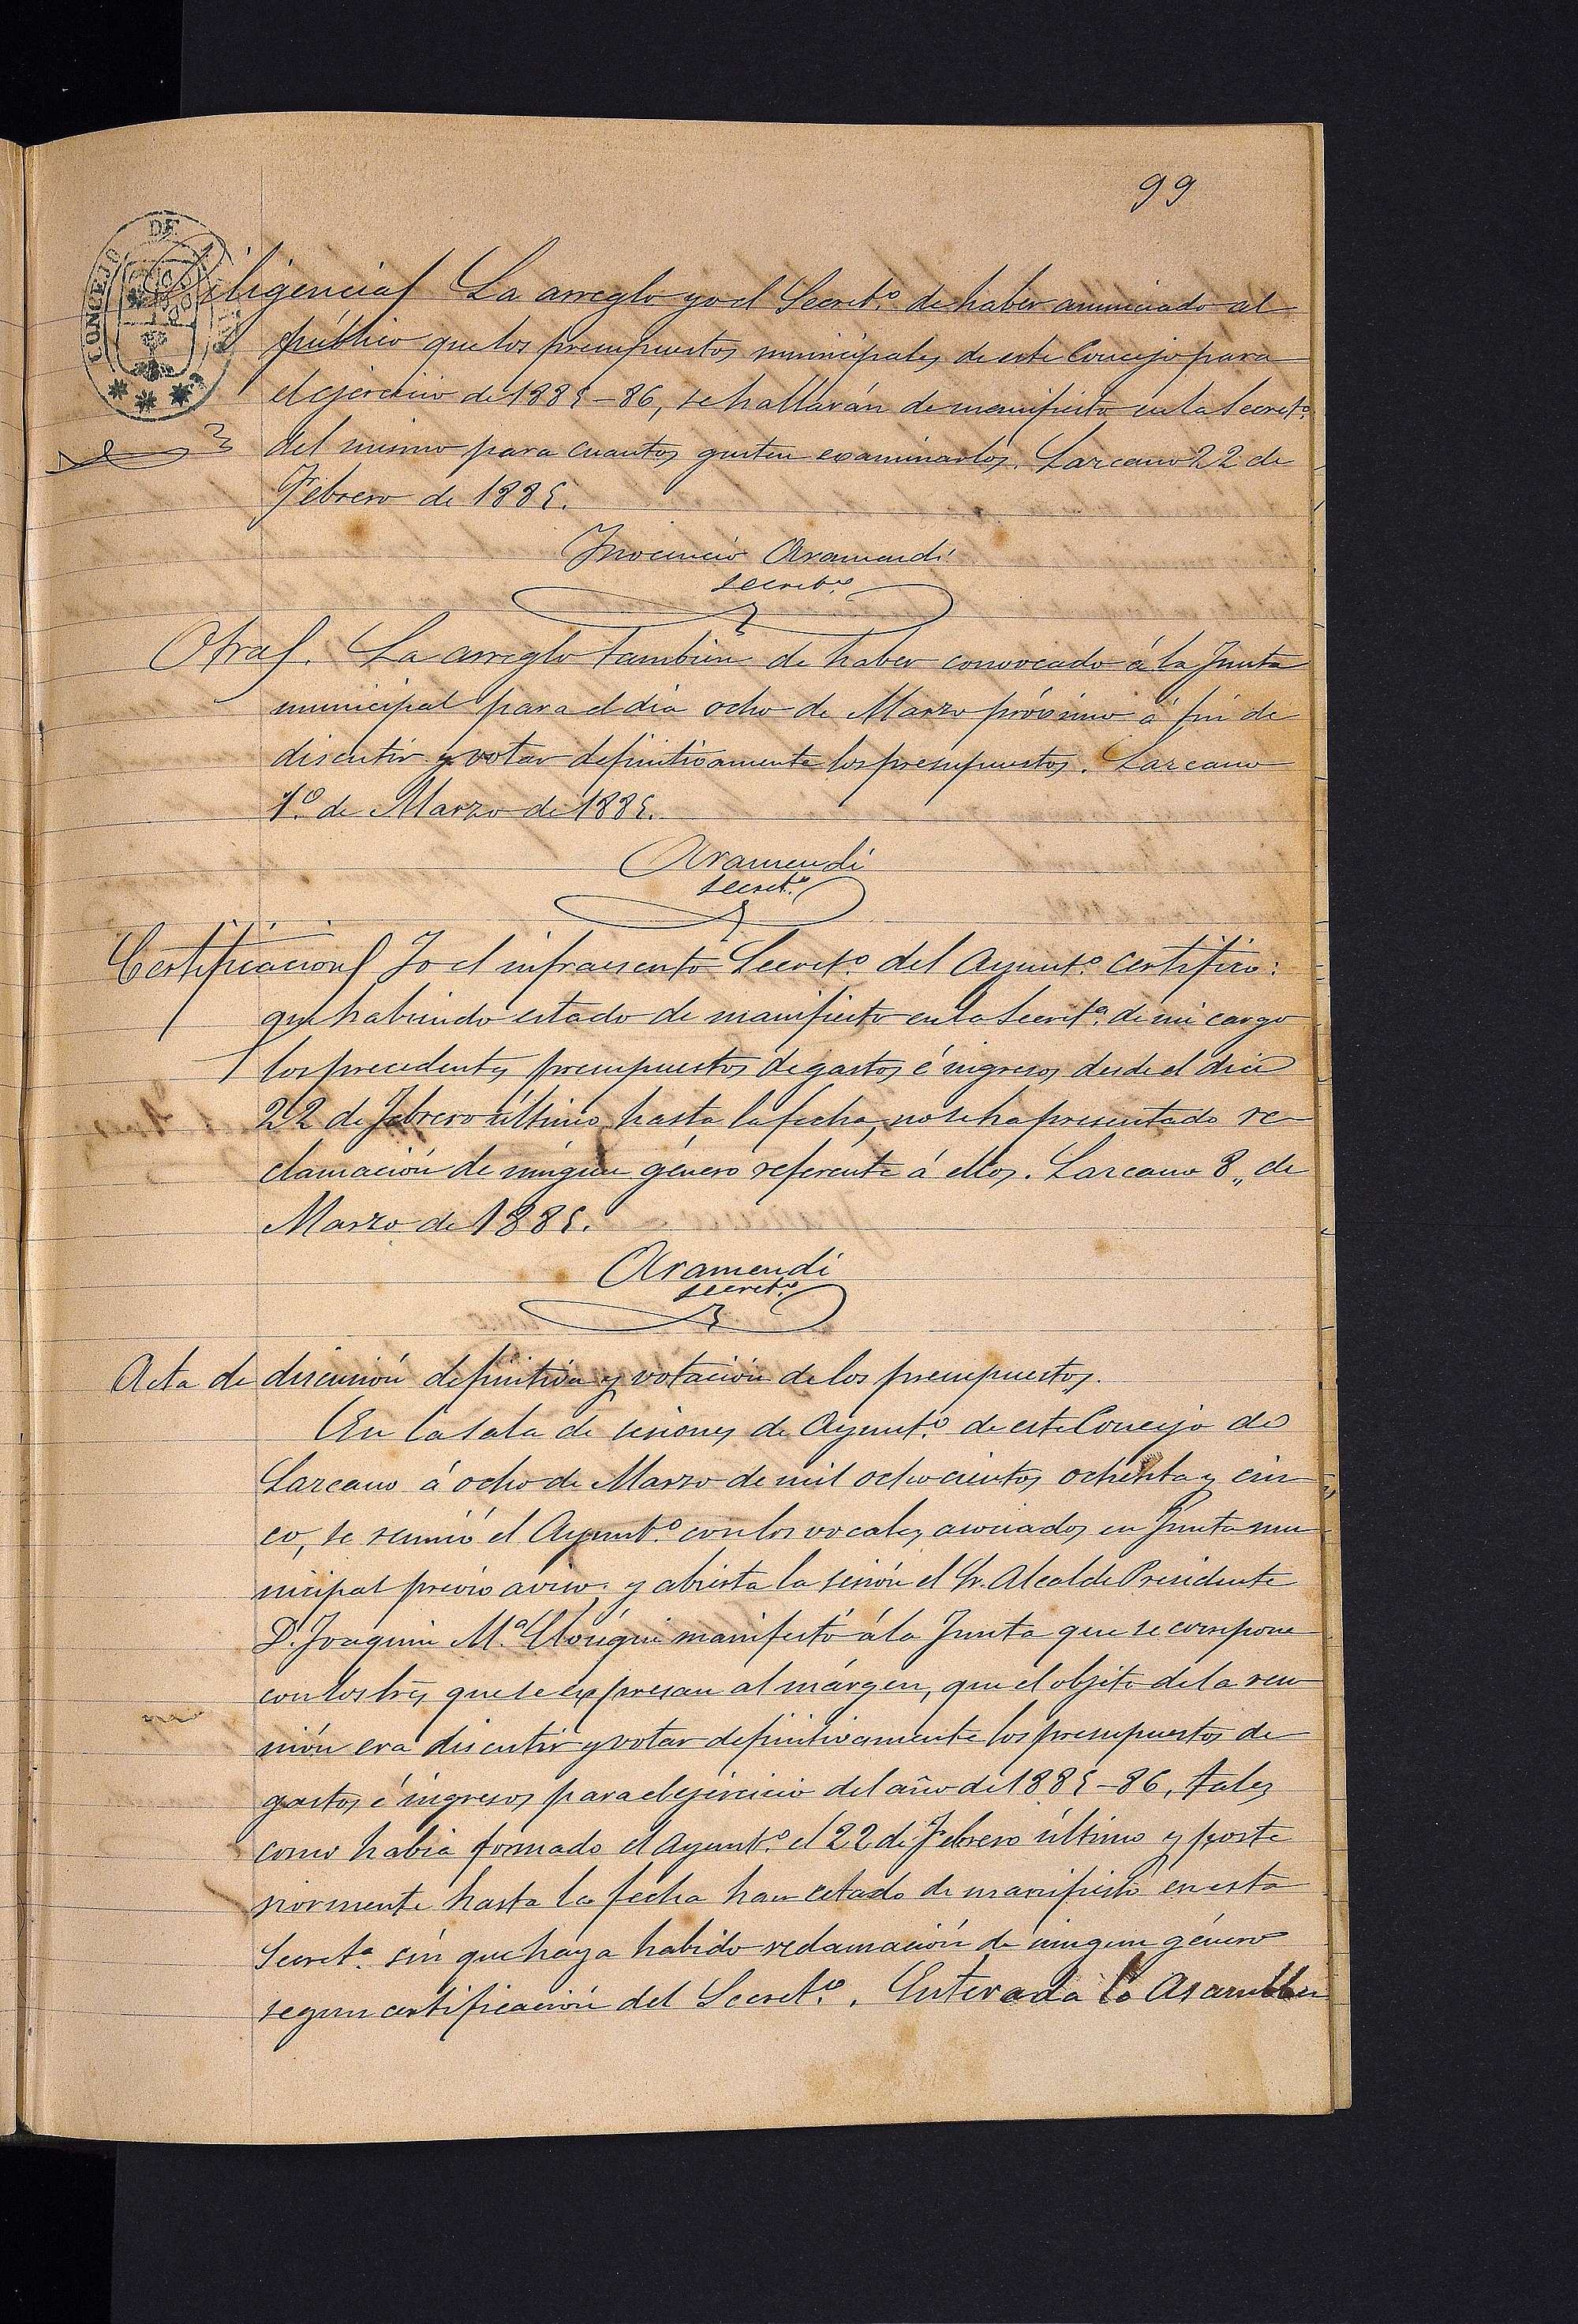 99
CONCEJO DE
Diligencia La arreglo yo el Secret.º de haber anunciado al
público que los presupuestos municipales de este Concejo para
el ejercicio de 1885-86, se hallarán de manifiesto en la Secret.ª
del mismo para cuantos gusten examinarlos. Lazcano 22 de
Febrero de 1885.
Inocencio Aramendi
secret.º
Otra. La arreglo tambien de haber convocado á la Junta
municipal para el dia ocho de Marzo próximo á fin de
discutir y votar definitivamente los presupuestos. Lazcano
1.º de Marzo de 1885.
Aramendi
secret.º
Certificacion Yo el infraescrito Secret.º del Ayunt.º certifico:
que habiendo estado de manifiesto en la Secret.ª de mi cargo
los precedentes presupuestos de gastos é ingresos desde el dia
22 de Febrero último hasta la fecha, no se ha presentado re-
clamación de ningun género referente á ellos. Lazcano 8,, de
Marzo de 1885.
Aramendi
secret.º
Acta de discusión definitiva y votación de los presupuestos.
En la sala de sesiones de Ayunt.º de este Concejo de
Lazcano á ocho de Marzo de mil ochocientos ochenta y cin
co, se reunió el Ayunt.º con los vocales asociados en Junta mu
nicipal prévio aviso, y abierta la sesión el Sr. Alcalde Presidente
D. Joaquin M.ª manifestó á la Junta que se compone
con los Sres que se expresan al márgen, que el objeto de la reu
nión era discutir y votar definitivamente los presupuestos de
gastos é ingresos para el ejercicio del año de 1885-86, tales
como habia formado el Ayunt.º el 22 de Febrero último y poste
riormente hasta la fecha han estado de manifiesto en esta
Secret.ª sin que haya habido reclamación de ningun género
segun certificación del Secret.º. Enterada la Asamblea